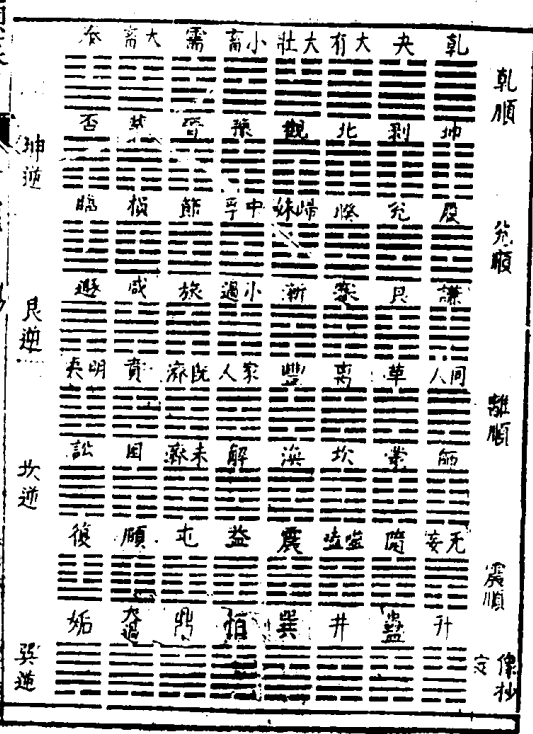 乾順
乾 夬 大有 大壯 小畜 需 大畜 泰
坤 剥 比 觀 豫 晉 萃 否
坤逆
兌順
履 兌 睽 歸妹 中孚 節 損 臨
謙 艮 蹇 漸 小過 旅 咸 遯
艮逆
離順
同人 革 离 豐 家人 既濟 賁 明夷
師 蒙 坎 渙 解 未濟 困 訟
坎逆
震順
无妄 隨 噬嗑 震 益 屯 頤 復
升 蠱 井 巽 恒 鼎 大過 姤
巽逆
像抄